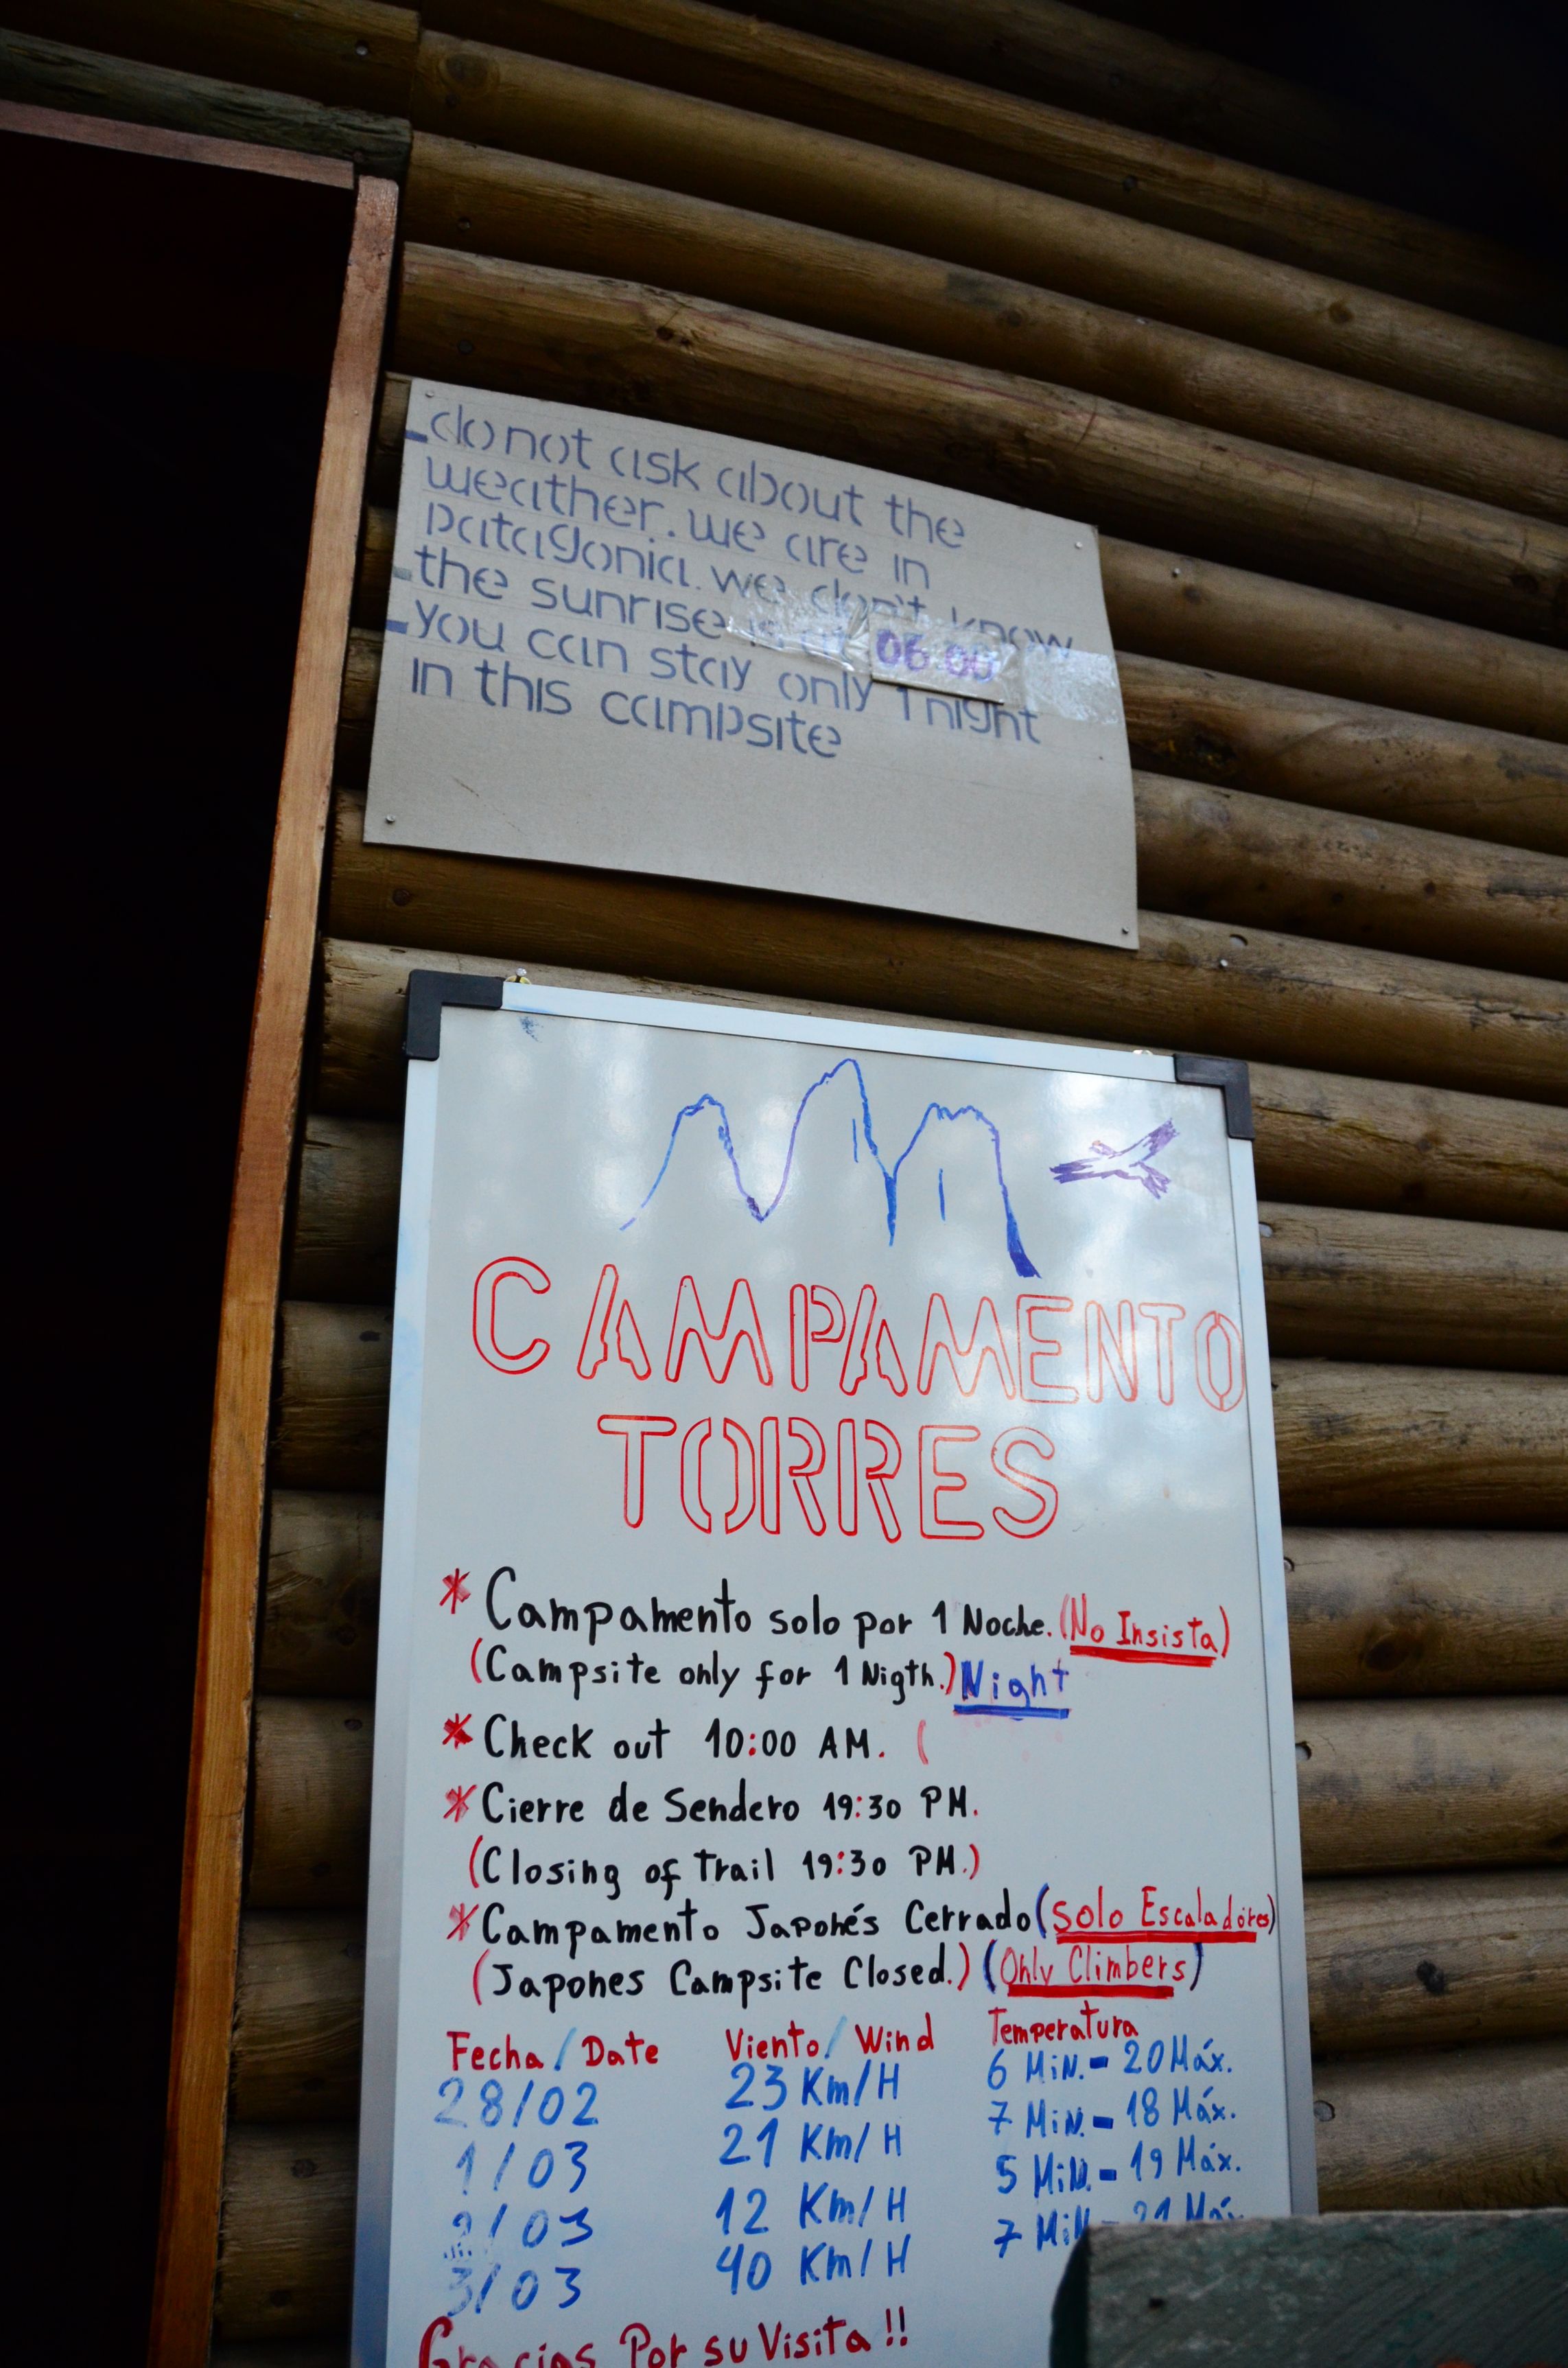 -do not ask about the
weather. we are in
patagonia. we don't know
-the sunrise is at 06:00
-you can stay only 1 night
in this campsite
CAMPAMENTO
TORRES
* Campamento solo por 1 Noche. (No Insista)
(Campsite only for 1 Nigth.) Night
* Check out 10:00 AM. (
* Cierre de Sendero 19:30 PM.
(Closing of Trail 19:30 PM.)
* Campamento Japonés Cerrado (Solo Escaladores)
(Japones Campsite Closed.) (Only Climbers)
Fecha / Date Viento / Wind Temperatura
28/02 23 Km/H 6 MiN. - 20 Máx.
1/03 21 Km/H 7 MiN. - 18 Máx.
2/03 12 Km/H 5 MiN. - 19 Máx.
3/03 40 Km/H 7 MiN - 21 Máx.
Gracias Por su Visita !!